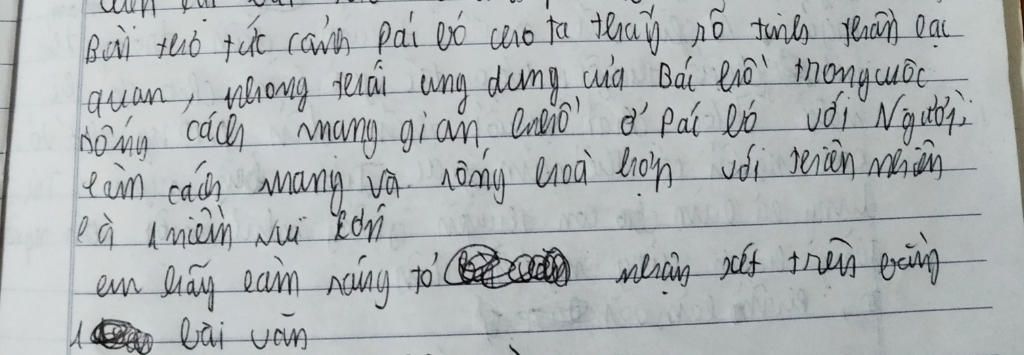 Bài thơ tức cảnh Pác Bó cho ta thấy rõ tinh thần lạc
quan, phong thái ung dung của Bác Hồ trong cuộc
sống cách mạng gian khổ ở Pác Bó với Người,
làm cách mạng và sống hoà hợp với thiên nhiên
là 1 niềm vui lớn
em hãy làm sáng tỏ nhận xét trên bằng
1 bài văn